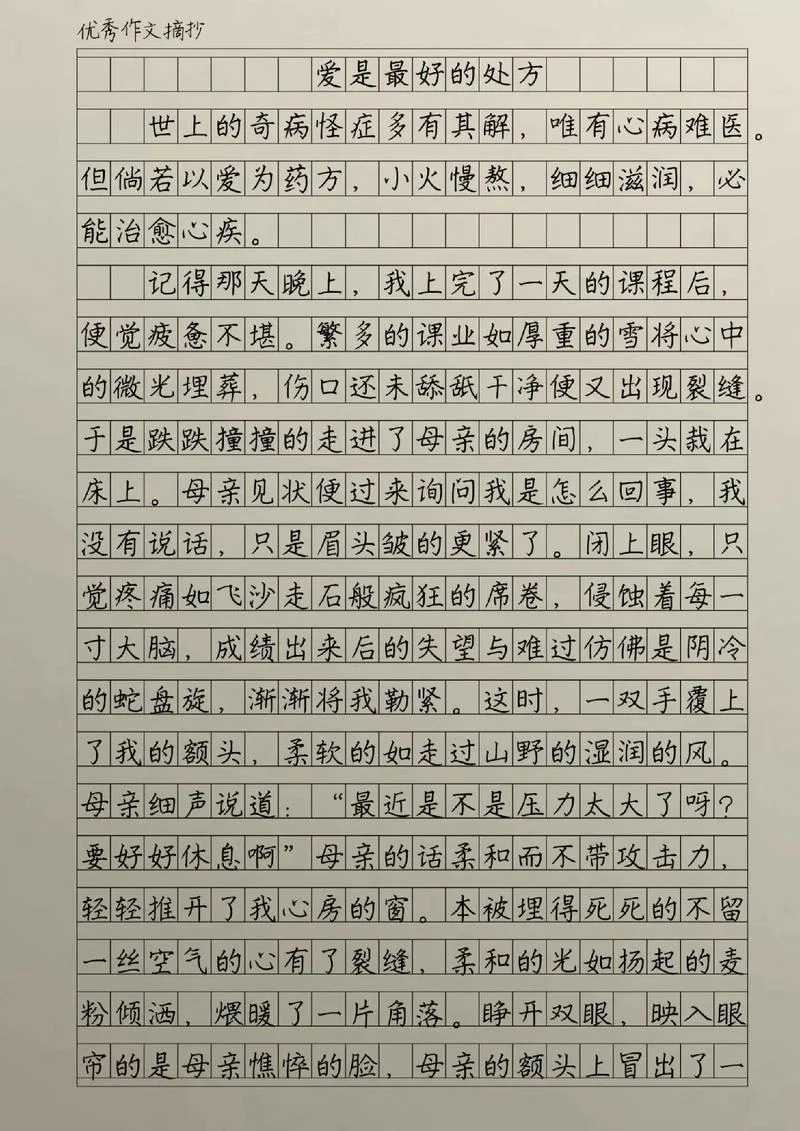 优秀作文摘抄
爱是最好的处方
世上的奇病怪症多有其解，唯有心病难医。
但倘若以爱为药方，小火慢熬，细细滋润，必
能治愈心疾。
记得那天晚上，我上完了一天的课程后，
便觉疲惫不堪。繁多的课业如厚重的雪将心中
的微光埋葬，伤口还未舔舐干净便又出现裂缝。
于是跌跌撞撞的走进了母亲的房间，一头栽在
床上。母亲见状便过来询问我是怎么回事，我
没有说话，只是眉头皱的更紧了。闭上眼，只
觉疼痛如飞沙走石般疯狂的席卷，侵蚀着每一
寸大脑，成绩出来后的失望与难过仿佛是阴冷
的蛇盘旋，渐渐将我勒紧。这时，一双手覆上
了我的额头，柔软的如走过山野的湿润的风。
母亲细声说道：“最近是不是压力太大了呀？
要好好休息啊”母亲的话柔和而不带攻击力，
轻轻推开了我心房的窗。本被埋得死死的不留
一丝空气的心有了裂缝，柔和的光如扬起的麦
粉倾洒，煨暖了一片角落。睁开双眼，映入眼
帘的是母亲憔悴的脸，母亲的额头上冒出了一